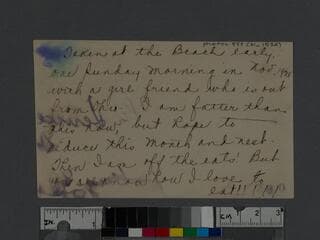 Taken at the Beach early,
one Sunday morning in Nov.
with a girl friend who is out
from
I am fatter than
this now, but hope to
reduce this month and next.
Then I am off the eats! But
how I love to
eat!!
INCHES 1 2
CM 1 2 3